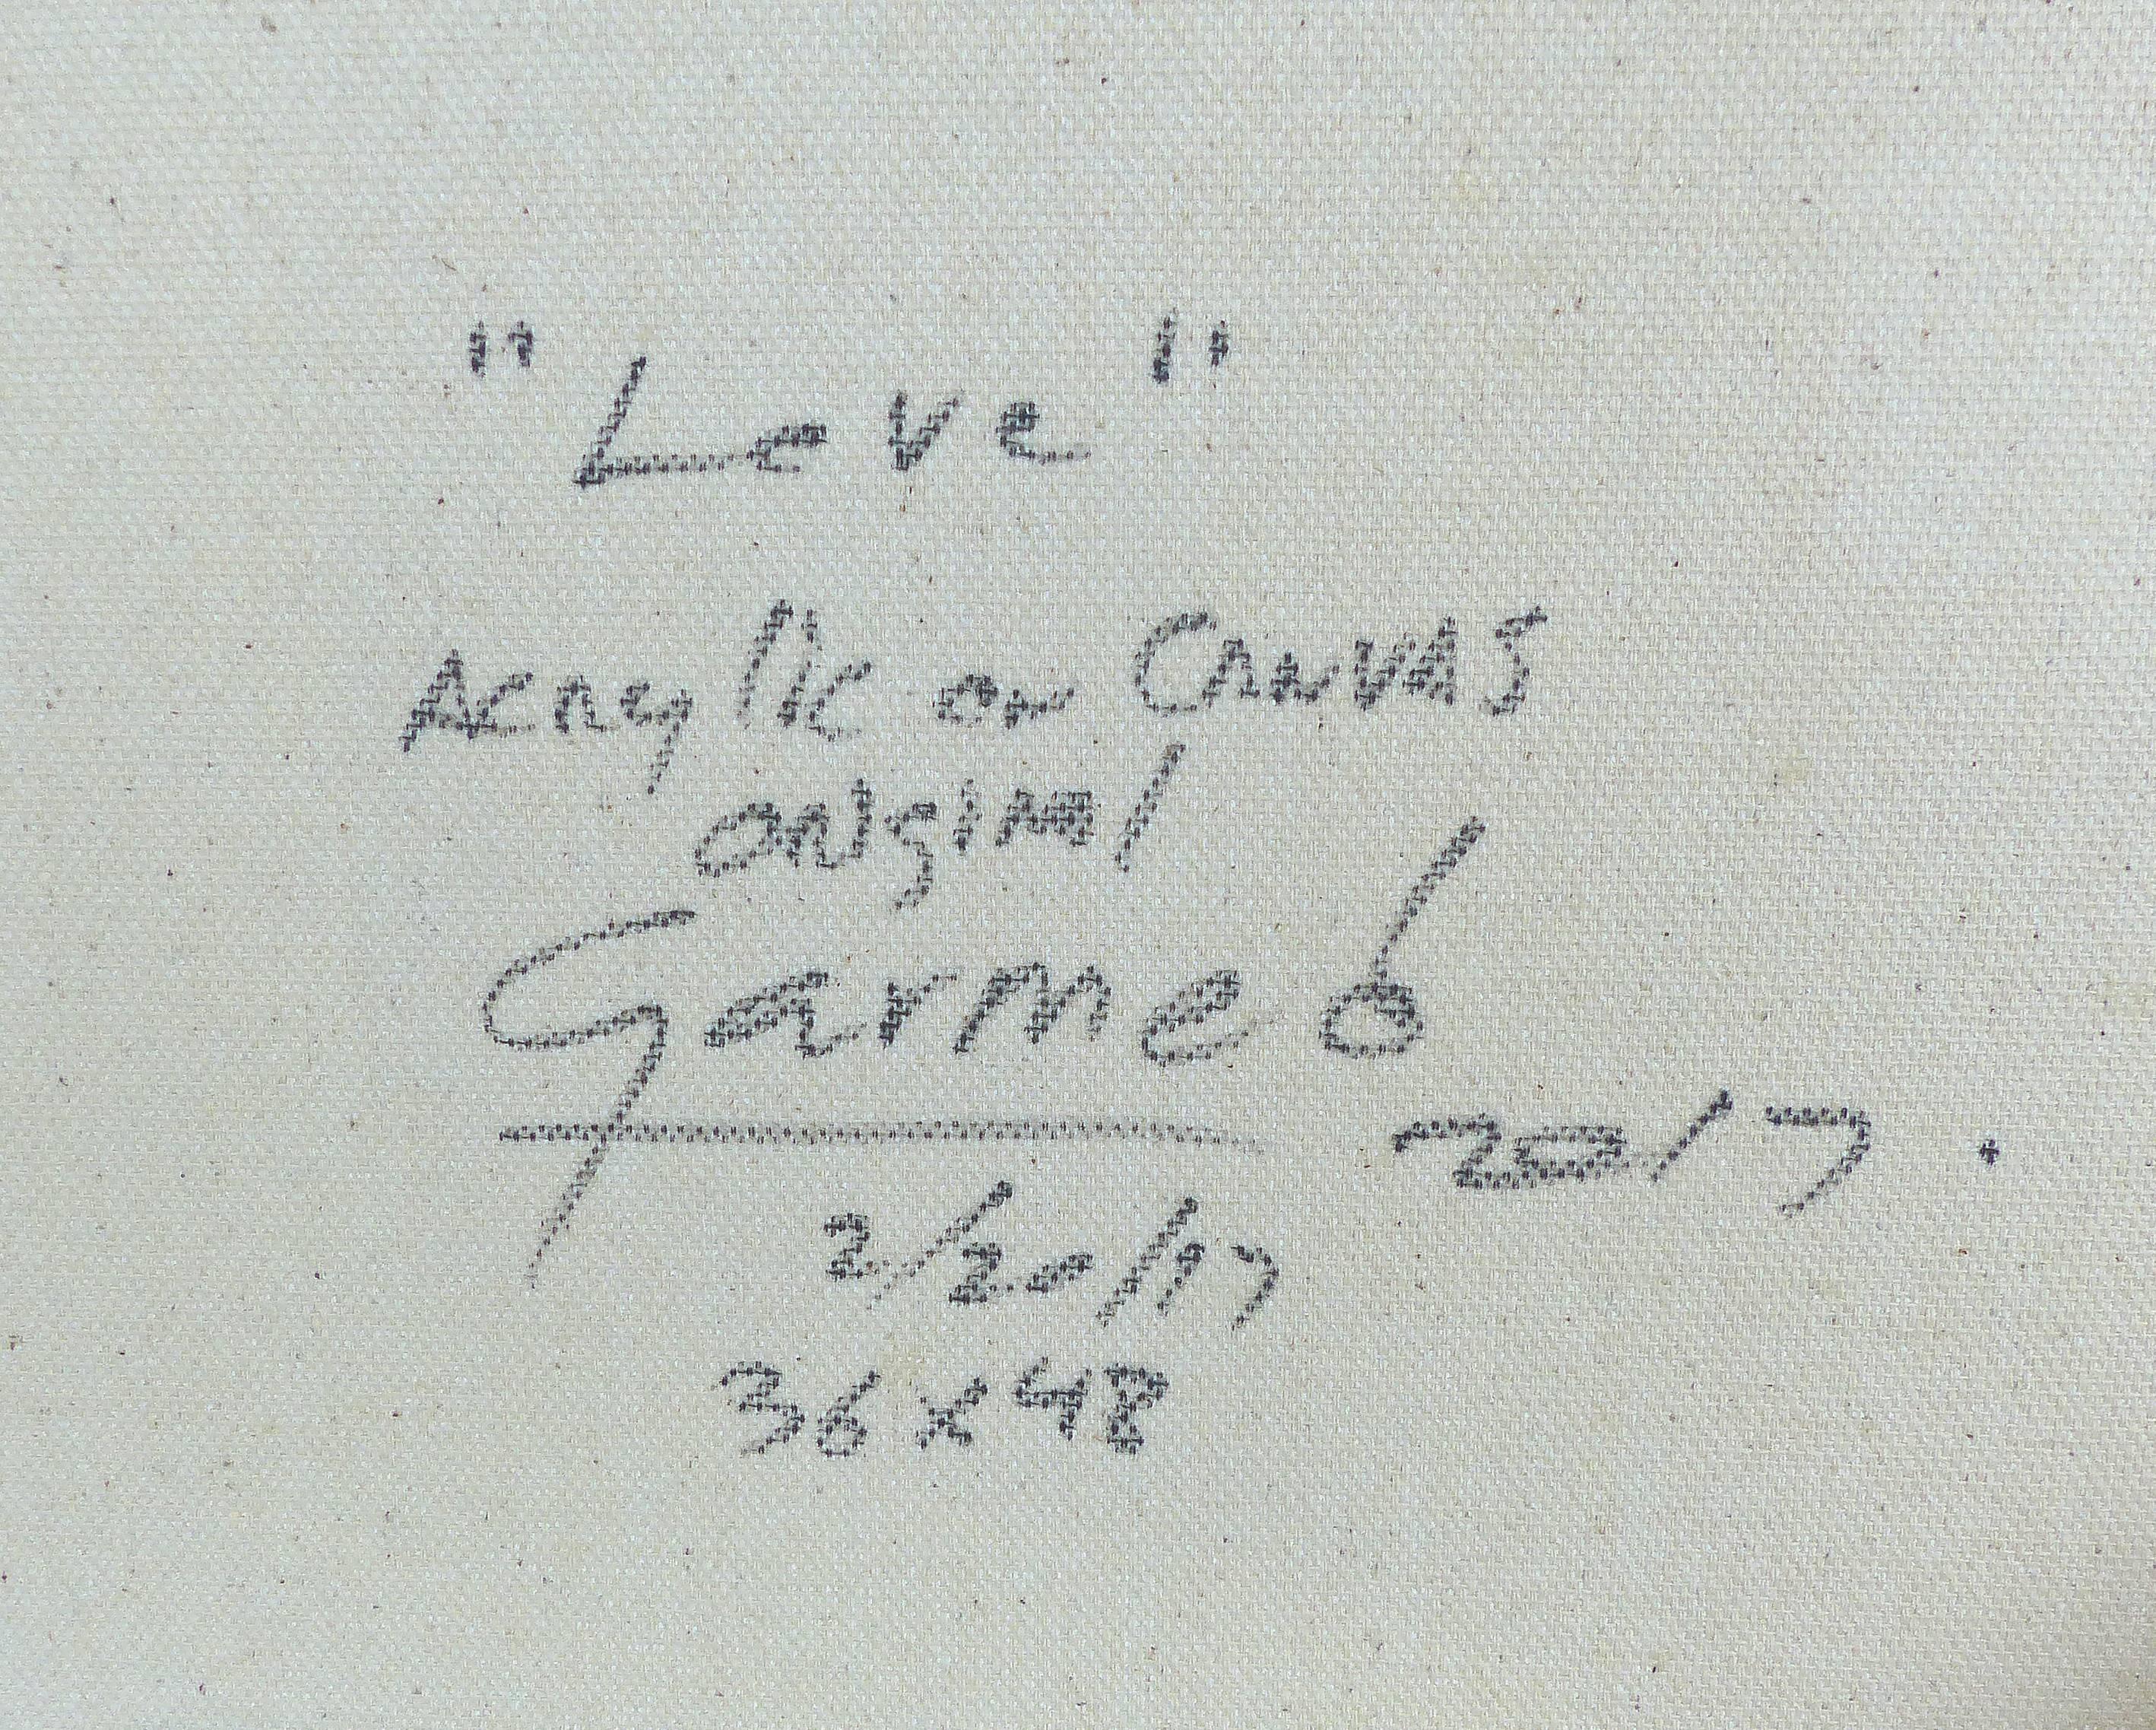 "Love"
Acrylic on Canvas
original
Garmed
2017.
2/20/17
36x48